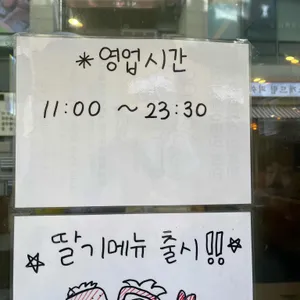 *영업시간
11:00 ~ 23:30
☆딸기메뉴 출시!!☆